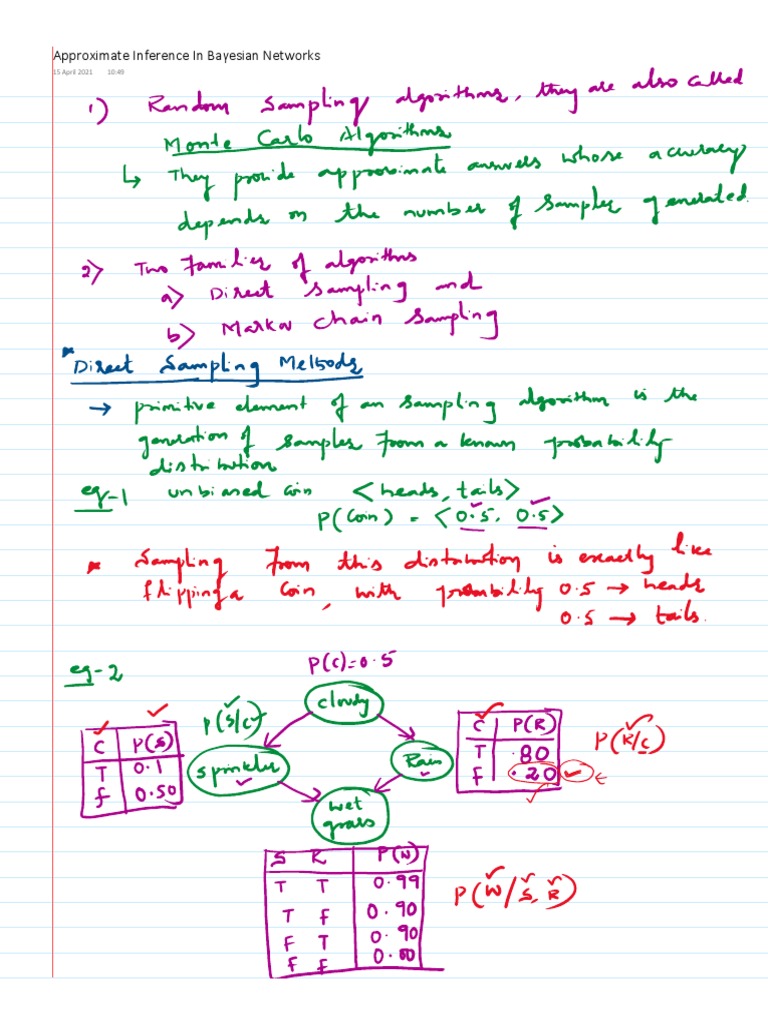 Approximate Inference In Bayesian Networks
15 April 2021 10:49
1) Random Sampling algorithms, they are also called
Monte Carlo Algorithms
↳ They provide approximate answers whose accuracy
depends on the number of samples generated.
2) Two families of algorithms
a) Direct sampling and
b) Markov chain sampling
* Direct Sampling Methods
→ primitive element of an sampling algorithm is the
generation of samples from a known probability
distribution
eg-1 unbiased coin <heads, tails>
P(Coin) = <0.5, 0.5>
* Sampling from this distribution is exactly like
flipping a coin, with probability 0.5 → heads
0.5 → tails.
eg-2
P(C)=0.5
cloudy
P(S/C)
C P(S)
T 0.1
F 0.50
sprinkler
Rain
C P(R)
T .80
F .20
P(R/C)
wet
grass
S R P(W)
T T 0.99
T F 0.90
F T 0.90
F F 0.00
P(W/S, R)